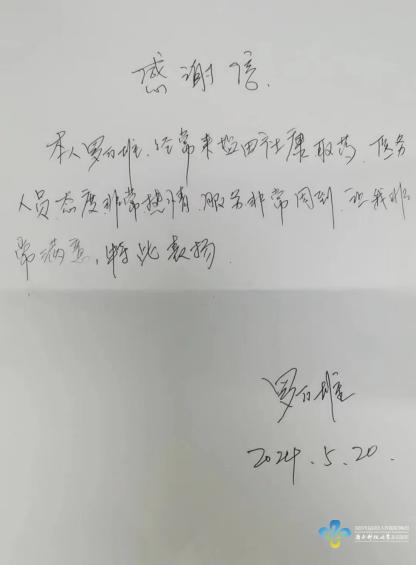 感谢信.
本人罗的雄.经常来盐田社康取药.医务
人员态度非常热情.服务非常周到.让我非
常满意,特此表扬.
罗的雄
2024.5.20.